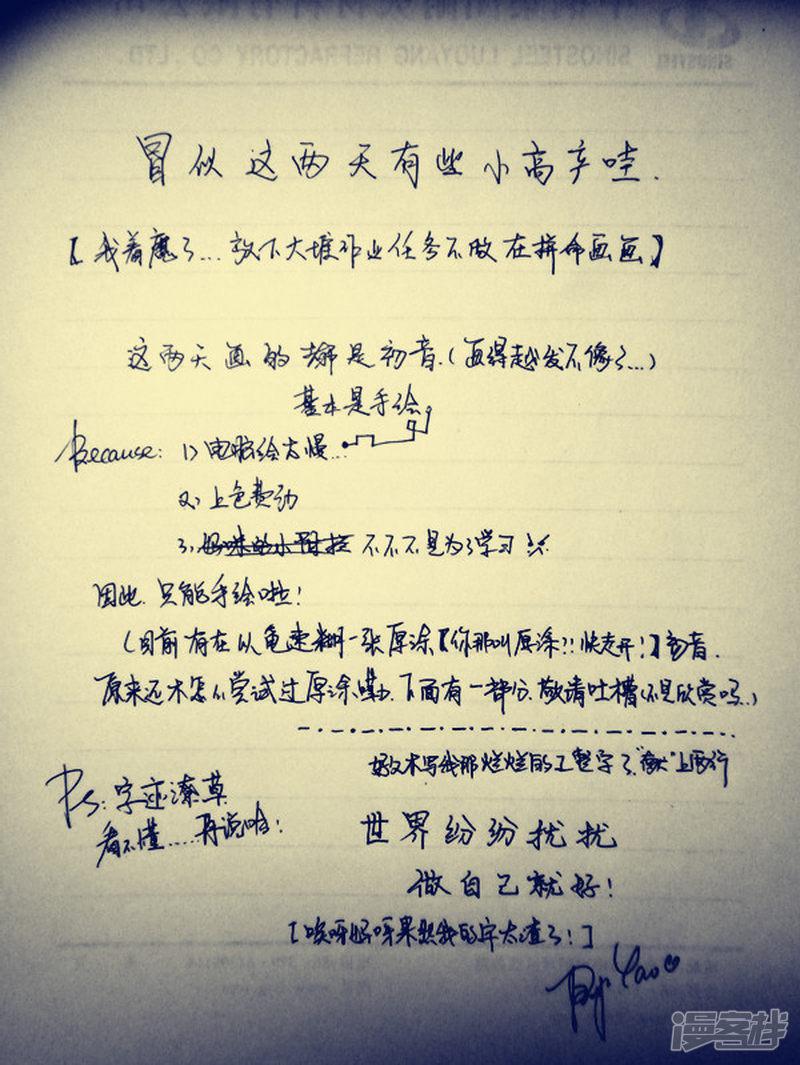 SINOSTEEL LUOYANG REFRACTORY CO.,LTD.
SINOSTEEL
冒似这两天有些小高产哇.
【我着魔了...放下大堆作业任务不做在拼命画画】
这两天画的都是初音.(画得越发不像了...)
基本是手绘
Because: 1>电脑绘太慢...
2>上色费劲
3, 不不不是为了学习
因此.只能手绘啦!
(目前有在以龟速糊一张厚涂【你那叫厚涂?!快走开!】初音.
原来还木怎么尝试过厚涂 下面有一部分.敬请吐槽(不是欣赏吗.)
好久木写我那烂烂的工整字了 上两行
Ps:字迹潦草
看不懂......再说啦!
世界纷纷扰扰
做自己就好!
[唉呀妈呀果然我的字太渣了!]
Yao
漫客栈